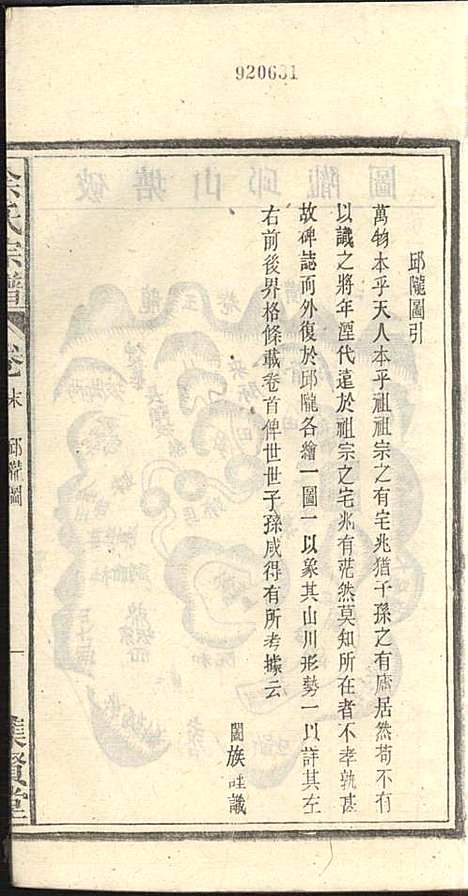 920631
邱隴圖引
萬物本乎天人本乎祖祖宗之有宅兆猶子孫之有廬居然苟不有
以識之將年湮代遠於祖宗之宅兆有茫然莫知所在者不孝孰甚
故碑誌而外復於邱隴各繪一圖一以象其山川形勢一以詳其左
右前後界格條載卷首俾世世子孫咸得有所考據云
闔族 識
氏宗譜
卷末
邱隴圖
一
集賢堂